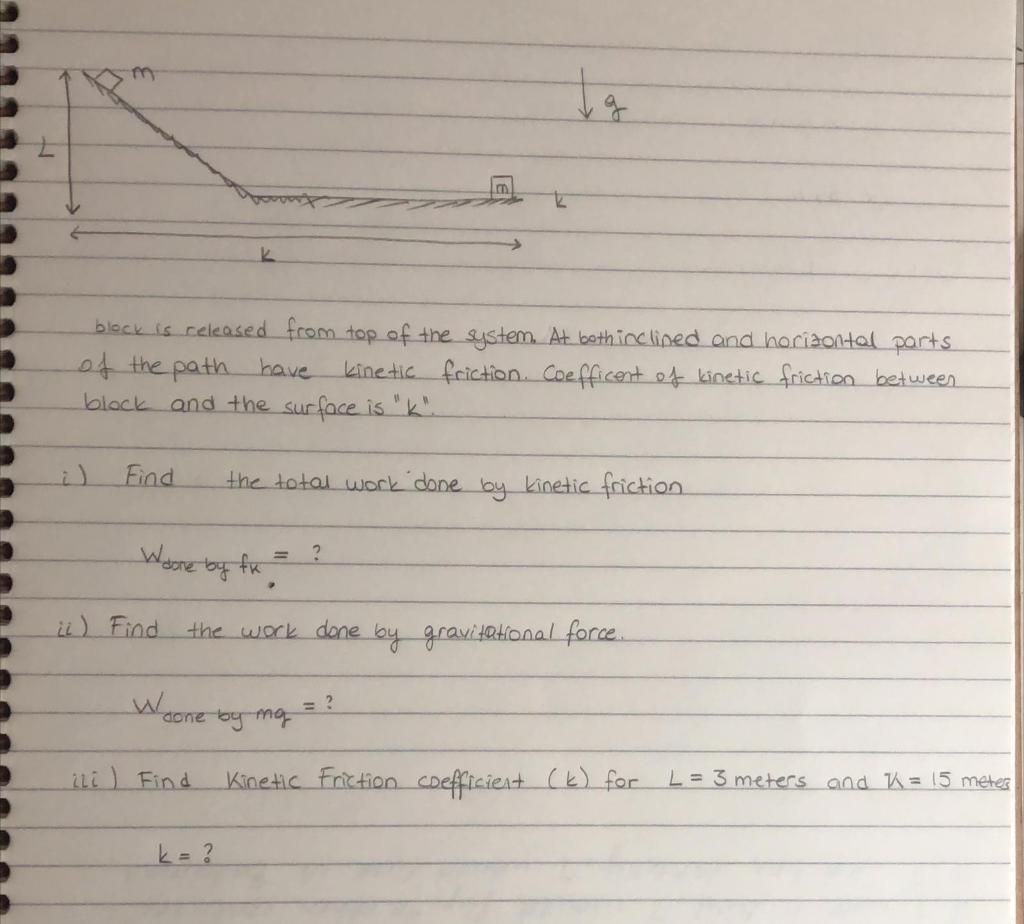 m
g
L
m
k
k
block is released from top of the system. At both inclined and horizontal parts
of the path have kinetic friction. Coefficent of kinetic friction between
block and the surface is "k".
i) Find the total work done by kinetic friction
Wdone by fk = ?
ii) Find the work done by gravitational force.
Wdone by mg = ?
iii) Find Kinetic Friction coefficient (k) for L = 3 meters and K = 15 meters
k = ?